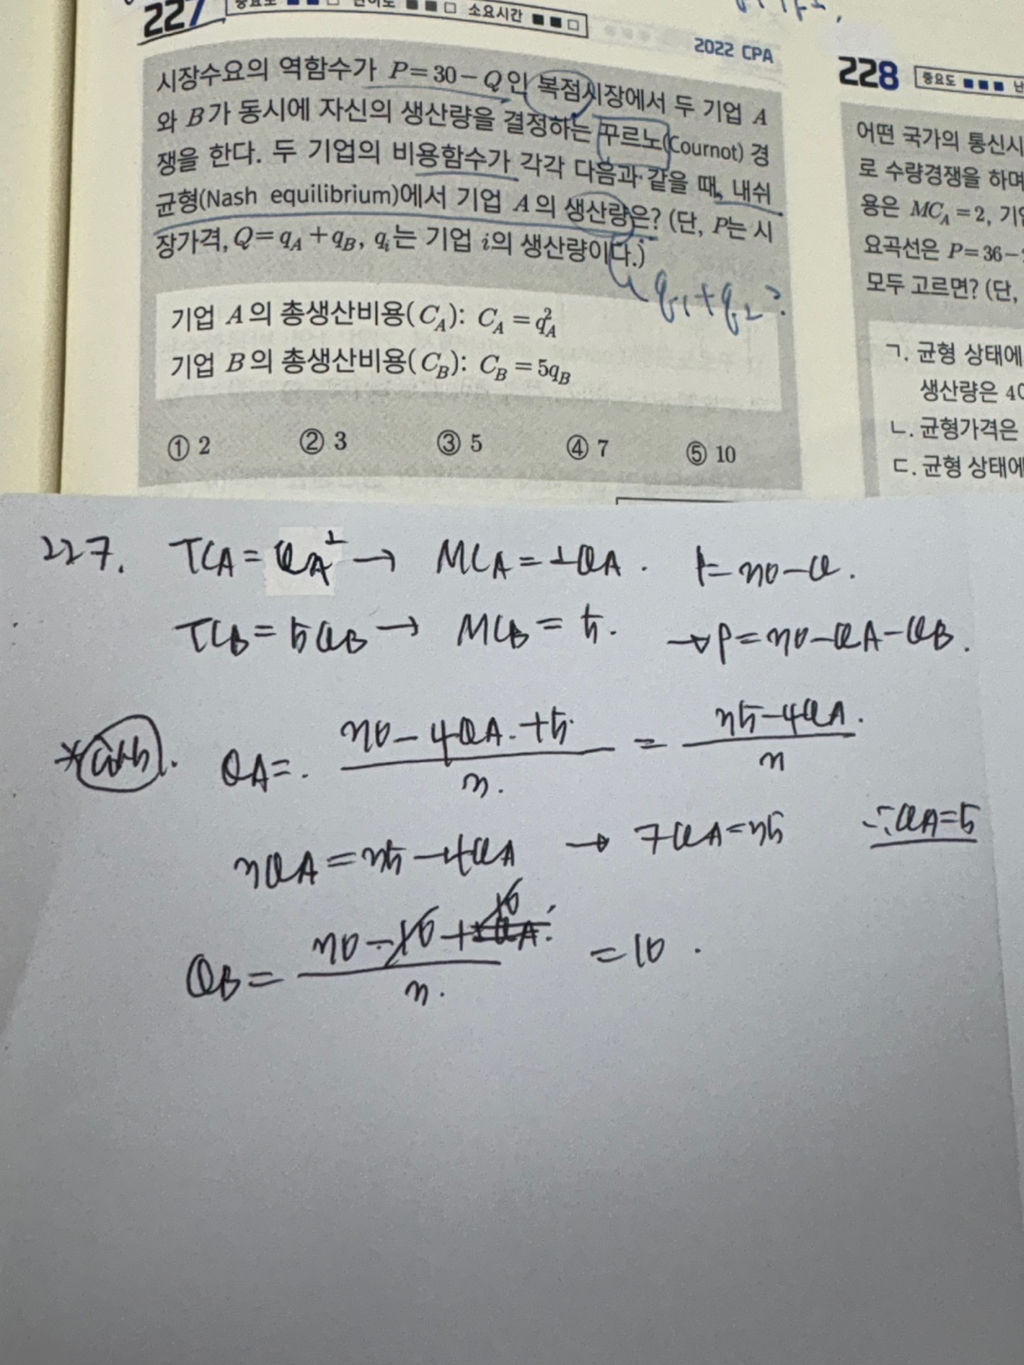 227 중요도 ■■□ 난이도 ■■□ 소요시간 ■■□
2022 CPA
시장수요의 역함수가 P=30-Q인 복점시장에서 두 기업 A
와 B가 동시에 자신의 생산량을 결정하는 꾸르노(Cournot) 경
쟁을 한다. 두 기업의 비용함수가 각각 다음과 같을 때, 내쉬
균형(Nash equilibrium)에서 기업 A의 생산량은? (단, P는 시
장가격, Q=q_A+q_B, q_i는 기업 i의 생산량이다.)
q1+q2?
기업 A의 총생산비용(C_A): C_A=q_A^2
기업 B의 총생산비용(C_B): C_B=5q_B
① 2 ② 3 ③ 5 ④ 7 ⑤ 10
228 중요도 ■■■ 난
어떤 국가의 통신시
로 수량경쟁을 하며
용은 MC_A=2, 기업
요곡선은 P=36-
모두 고르면? (단,
ㄱ. 균형 상태에
생산량은 40
ㄴ. 균형가격은
ㄷ. 균형 상태에
227. TCA=QA² → MCA=2QA. P=30-Q.
TCB=5QB → MCB=5. → P=30-QA-QB.
QA = (30-4QA+5)/3 = (35-4QA)/3
3QA=35-4QA → 7QA=35 ∴QA=5
QB = (30-10+10)/3 = 10.